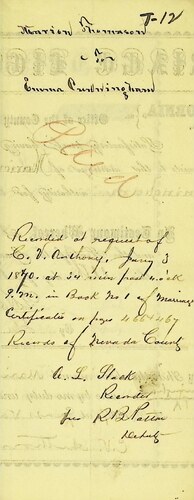 T-12
Marion Thomason
To
Emma Cunningham
Paid
Recorded at request of
C. V. Anthony, Jany 3
1870. at 34 min past 4 o.clk
P.M. in Book No 1 of Marriage
Certificates on pages 466 & 467
Records of Nevada County
A. L. Stack
Recorder
R B Patton
Deputy